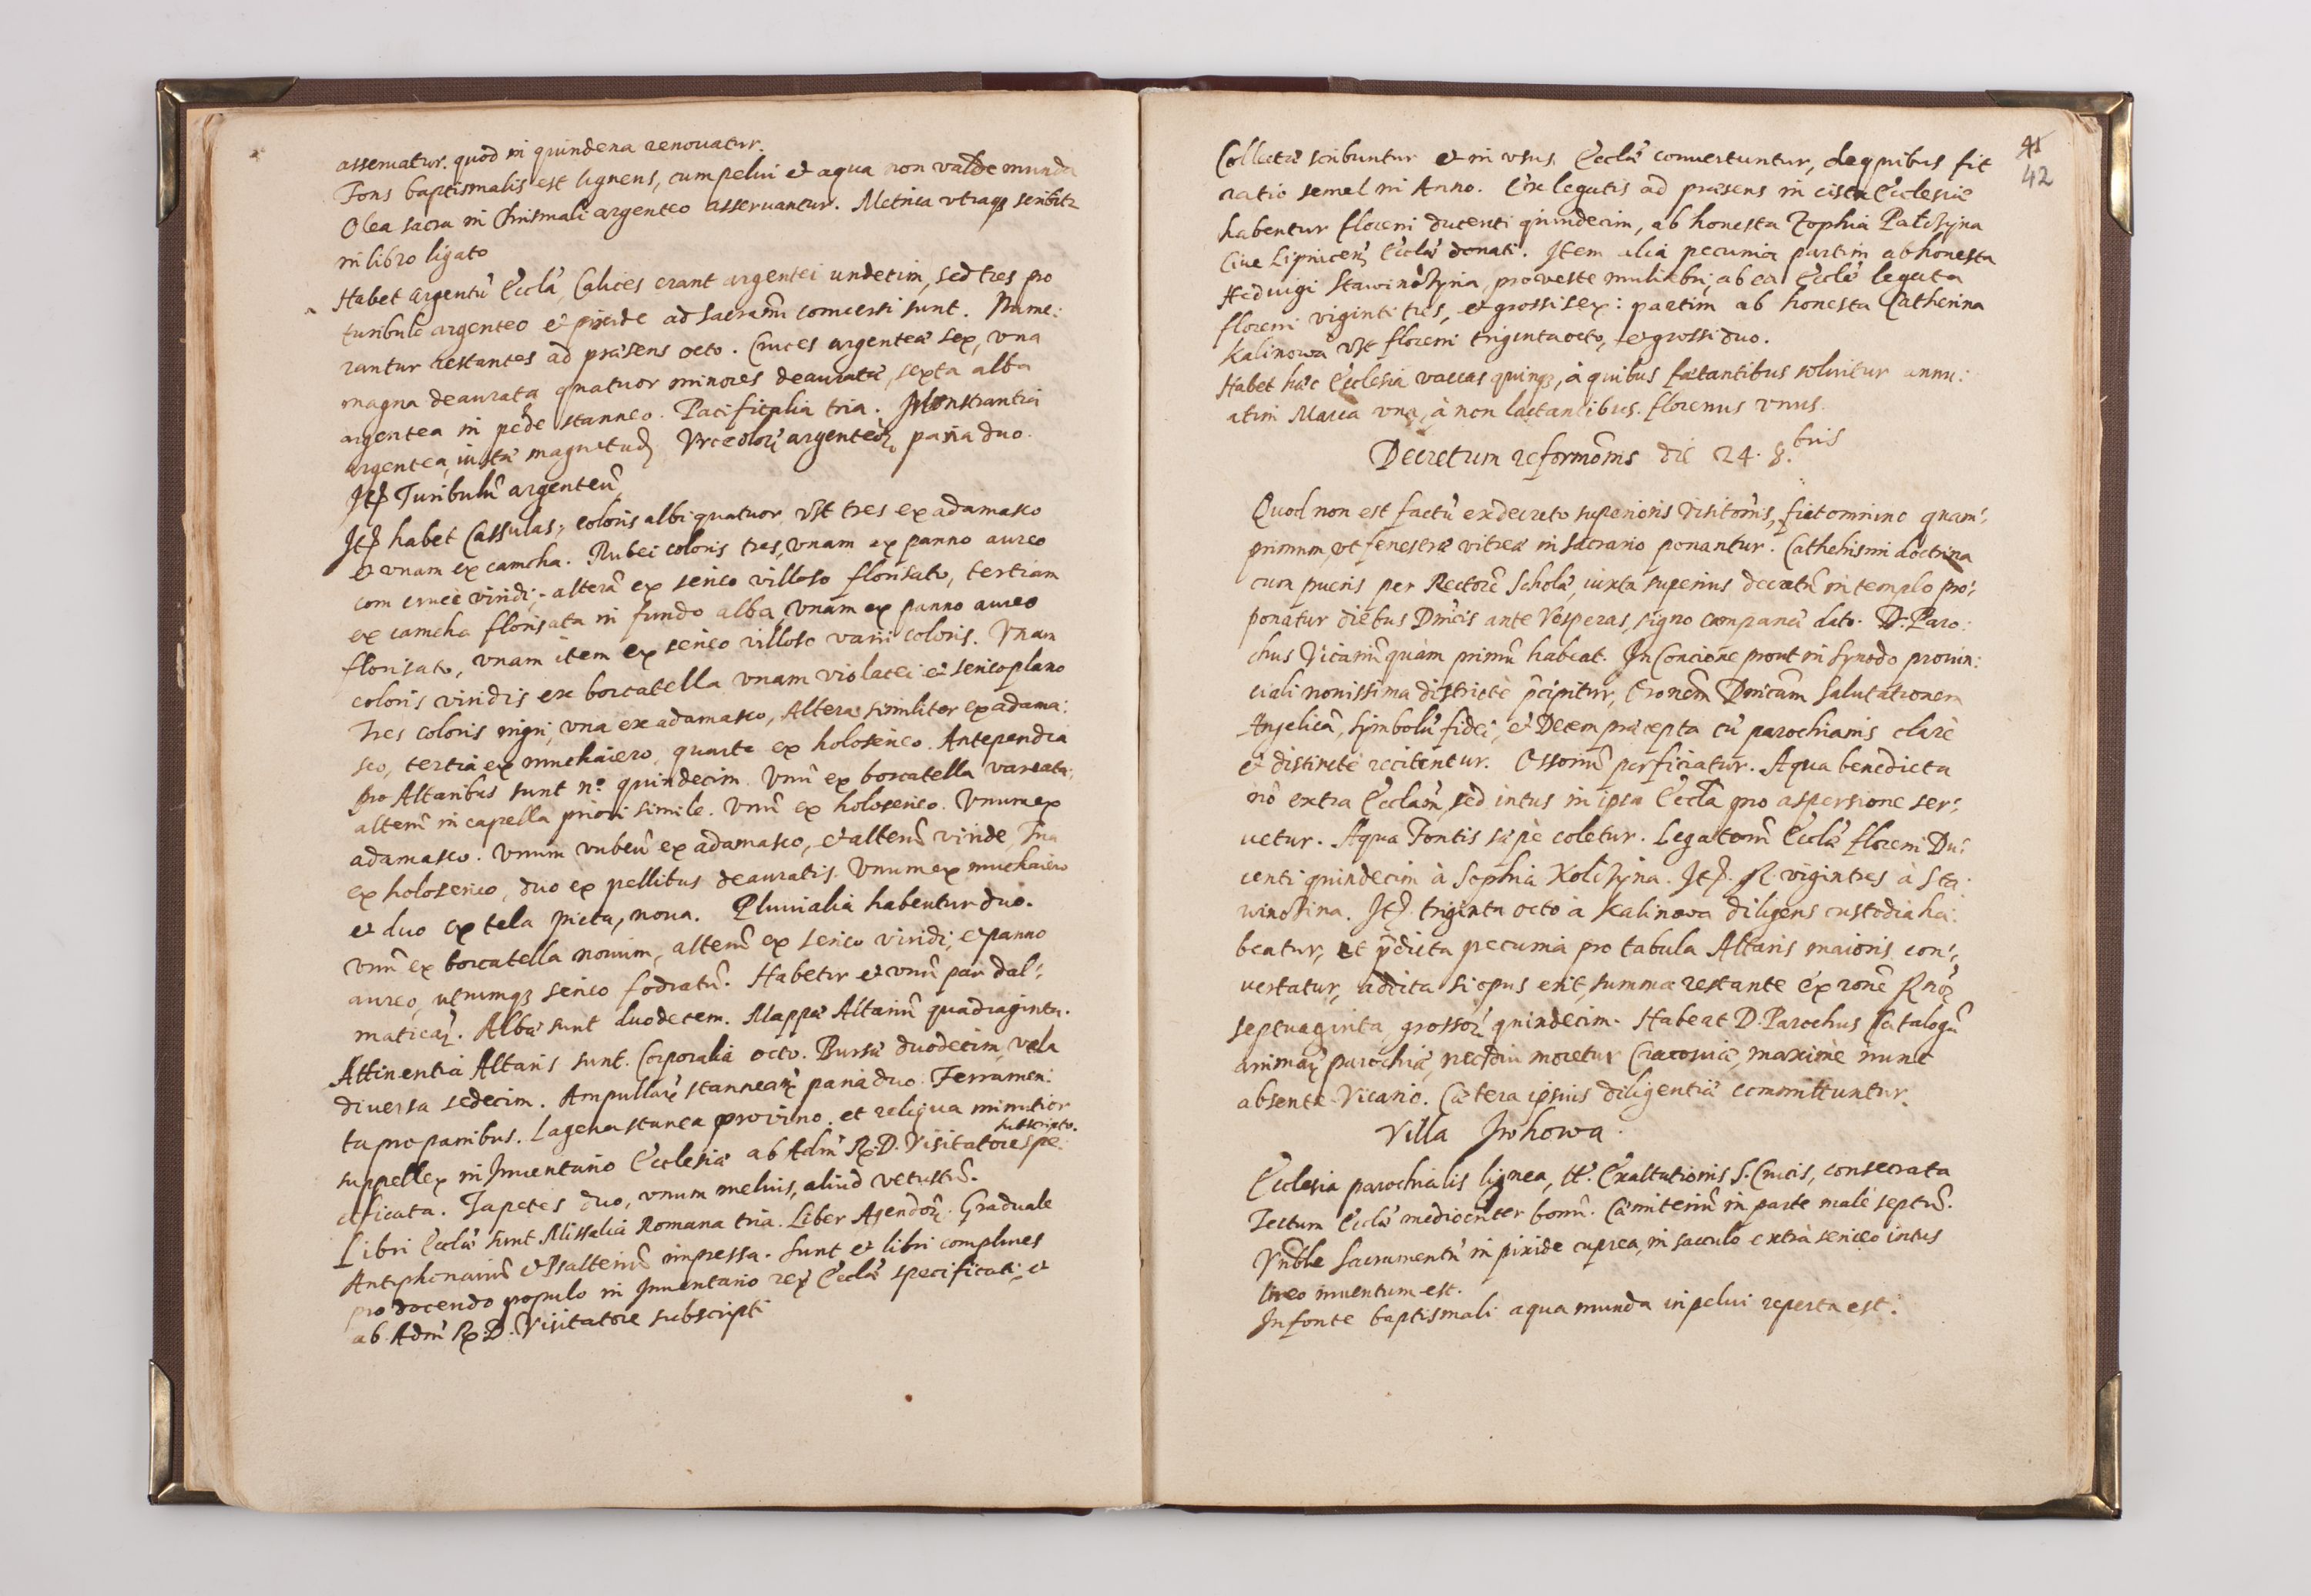 asseruatur. quod in quindena renouatur.
Fons baptismalis est ligneus, cum pelui et aqua non valde munda
Olea sacra in Chrismali argenteo asseruantur. Metrica vtraq3 scribitr
in libro ligato
Habet argentũ Eccla, Calices erant argentei undecim, sed tres pro
turibulo argenteo et pixide ad sacram̃ conuersi sunt. Nume:
rantur restantes ad præsens octo. Cruces argenteæ sex, vna
magna deaurata quatuor minores deauratæ, sexta alba
argentea in pede stanneo. Pacificalia tria. Monstrantia
argentea, iustæ magnitud. Vrceolorũ argenteorũ paria duo.
Itẽ Turibulũ argenteũ
Itẽ habet Cassulas; coloris albi quatuor vt tres ex adamasco
et vnam ex camcha. Rubei coloris tres, vnam ex panno aureo
com cruce viridi; alterã ex serico villoso florisato, tertiam
ex camcha florisata in fundo alba, vnam ex panno aureo
florisato, vnam item ex serico villoso varii coloris. Vnam
coloris viridis ex borcatella vnam violacei et serico plano
Tres coloris nigri, vna ex adamasco, Altera similiter ex adama:
sco, tertia ex muchaiero, quarta ex holoserico. Antependia
pro Altaribus sunt nº quindecim. Vnũ ex borcatella variata,
alterũ in capella priori simile. Vnũ ex holoserico. Vnum ex
adamasco. Vnum rubeũ ex adamasco, et alterũ viride, Tria
ex holoserico, duo ex pellibus deauratis. Vnum ex muchaiero
et duo ex tela picta, noua. Pluuialia habentur duo.
Vnũ ex borcatella nouum, alterũ ex serico viridi, et panno
aureo, utrumq3 serico fodratũ. Habetur et vnũ par dal:
maticarũ. Albæ sunt duodecem. Mappæ Altariũ quadraginta.
Attinentia Altaris sunt. Corporalia octo. Bursæ duodecim, vela
diuersa sedecim. Ampullarũ stannearũ paria duo. Ferramen:
ta pro panibus. Lagena stanea pro vino. et reliqua minutior
suppellex in Inuentario Ecclesiæ ab Adm̃ R.D. Visitatore subscripto. spe:
cificata. Tapetes duo, vnum melius, aliud vetustũ.
Libri Ecclæ sunt Missalia Romana tria. Liber Agendorũ. Graduale
Antiphonariũ et Psalteriũ impressa. Sunt et libri complures
pro docendo populo in Inuentario rerũ Ecclæ specificati, et
ab Adm̃ R.D. Visitatore subscripti
41
42
Collectæ scribuntur et in vsus Ecclæ conuertuntur, de quibus fit
ratio semel in Anno. Ex legatis ad præsens in cista Ecclesiæ
habentur floreni ducenti quindecim, ab honesta Zophia
Ciue Lipnicen̄ Ecclæ donati. Item alia pecunia partim ab honesta
Heduigi, pro veste muliebri, ab ea Ecclæ legata
floreni viginti tres, et grossi sex: partim ab honesta Catherina
Kalinowa vt floreni triginta octo, et grossi duo.
Habet hæc Ecclesia vaccas quinq3, à quibus lactantibus soluitur annu:
atim Marca vna, à non lactantibus florenus vnus.
Decretum reformõnis die 24. 8.bris
Quod non est factũ ex decreto superioris Visitõnis, fiet omnino quam:
primum, vt fenestræ vitreæ in sacrario ponantur. Cathesismi doctrina
cum pueris per Rectorẽ Scholæ, iuxta superius decretũ in templo pro:
ponatur diebus Dnicis ante Vesperas, signo campanæ dato. D. Paro:
chus Vicariũ quàm primũ habeat. In Concione prout in Synodo prouin:
ciali nouissima districtè p̃cipitur, Orõnem Dnicam Salutationem
Angelicã, symbolũ fidei, et Decem præcepta cũ parochianis clarè
et distinctè recitentur. Ossoriũ perficiatur. Aqua benedicta
nõ extra Ecclam̃, sed intus in ipsa Eccla pro aspersione ser:
uetur. Aqua Fontis sæpè coletur. Legatorũ Ecclæ floreni Du:
centi quindecim à Sophia. Itẽ. fl. vigintres à Sta:
. Itẽ. triginta octo à Kalinowa diligens custodia ha:
beatur, et p̃dicta pecunia pro tabula Altaris maioris con:
uertatur, addita si opus erit, summa restante ex rõne
septuaginta, grossorũ quindecim. Habeat D. Parochus Catalogũ
animarũ parochiæ, nec diu moretur Cracouiæ, maximè nunc
absente Vicario. Cætera ipsius diligentiæ committuntur.
Villa
Ecclesia parochialis lignea, tt. Exaltationis S. Crucis, consecrata
Tectum Ecclæ mediocriter bonũ. Cæmiteriũ in parte malè septũ.
Vnble Sacramentũ in pixide cuprea, in sacculo extrà sericeo intus
lineo inuentum est.
In fonte baptismali aqua munda in pelui reperta est.